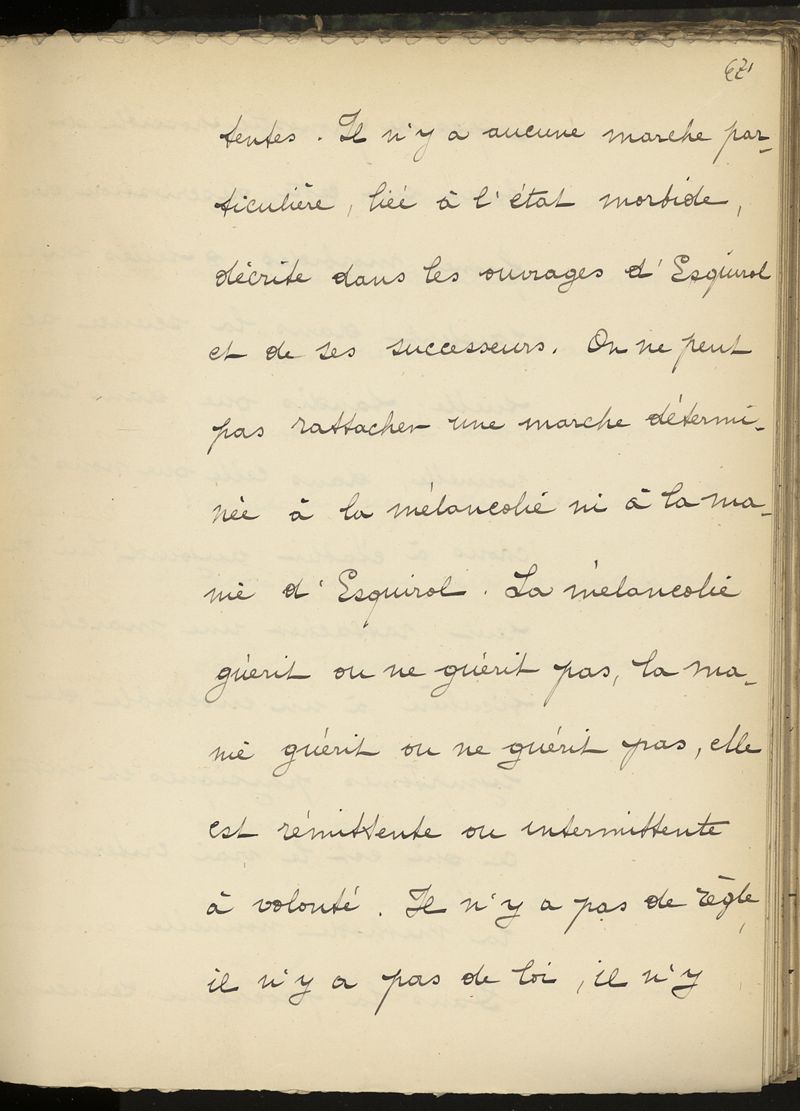 671
tentes. Il n'y a aucune marche par-
ticulière, liée à l'état morbide,
décrite dans les ouvrages d'Esquirol
et de ses successeurs. On ne peut
pas rattacher une marche détermi-
née à la mélancolie ni à la ma-
nie d'Esquirol. La mélancolie
guérit ou ne guérit pas, la ma-
nie guérit ou ne guérit pas, elle
est rémittente ou intermittente
à volonté. Il n'y a pas de règle,
il n'y a pas de loi, il n'y